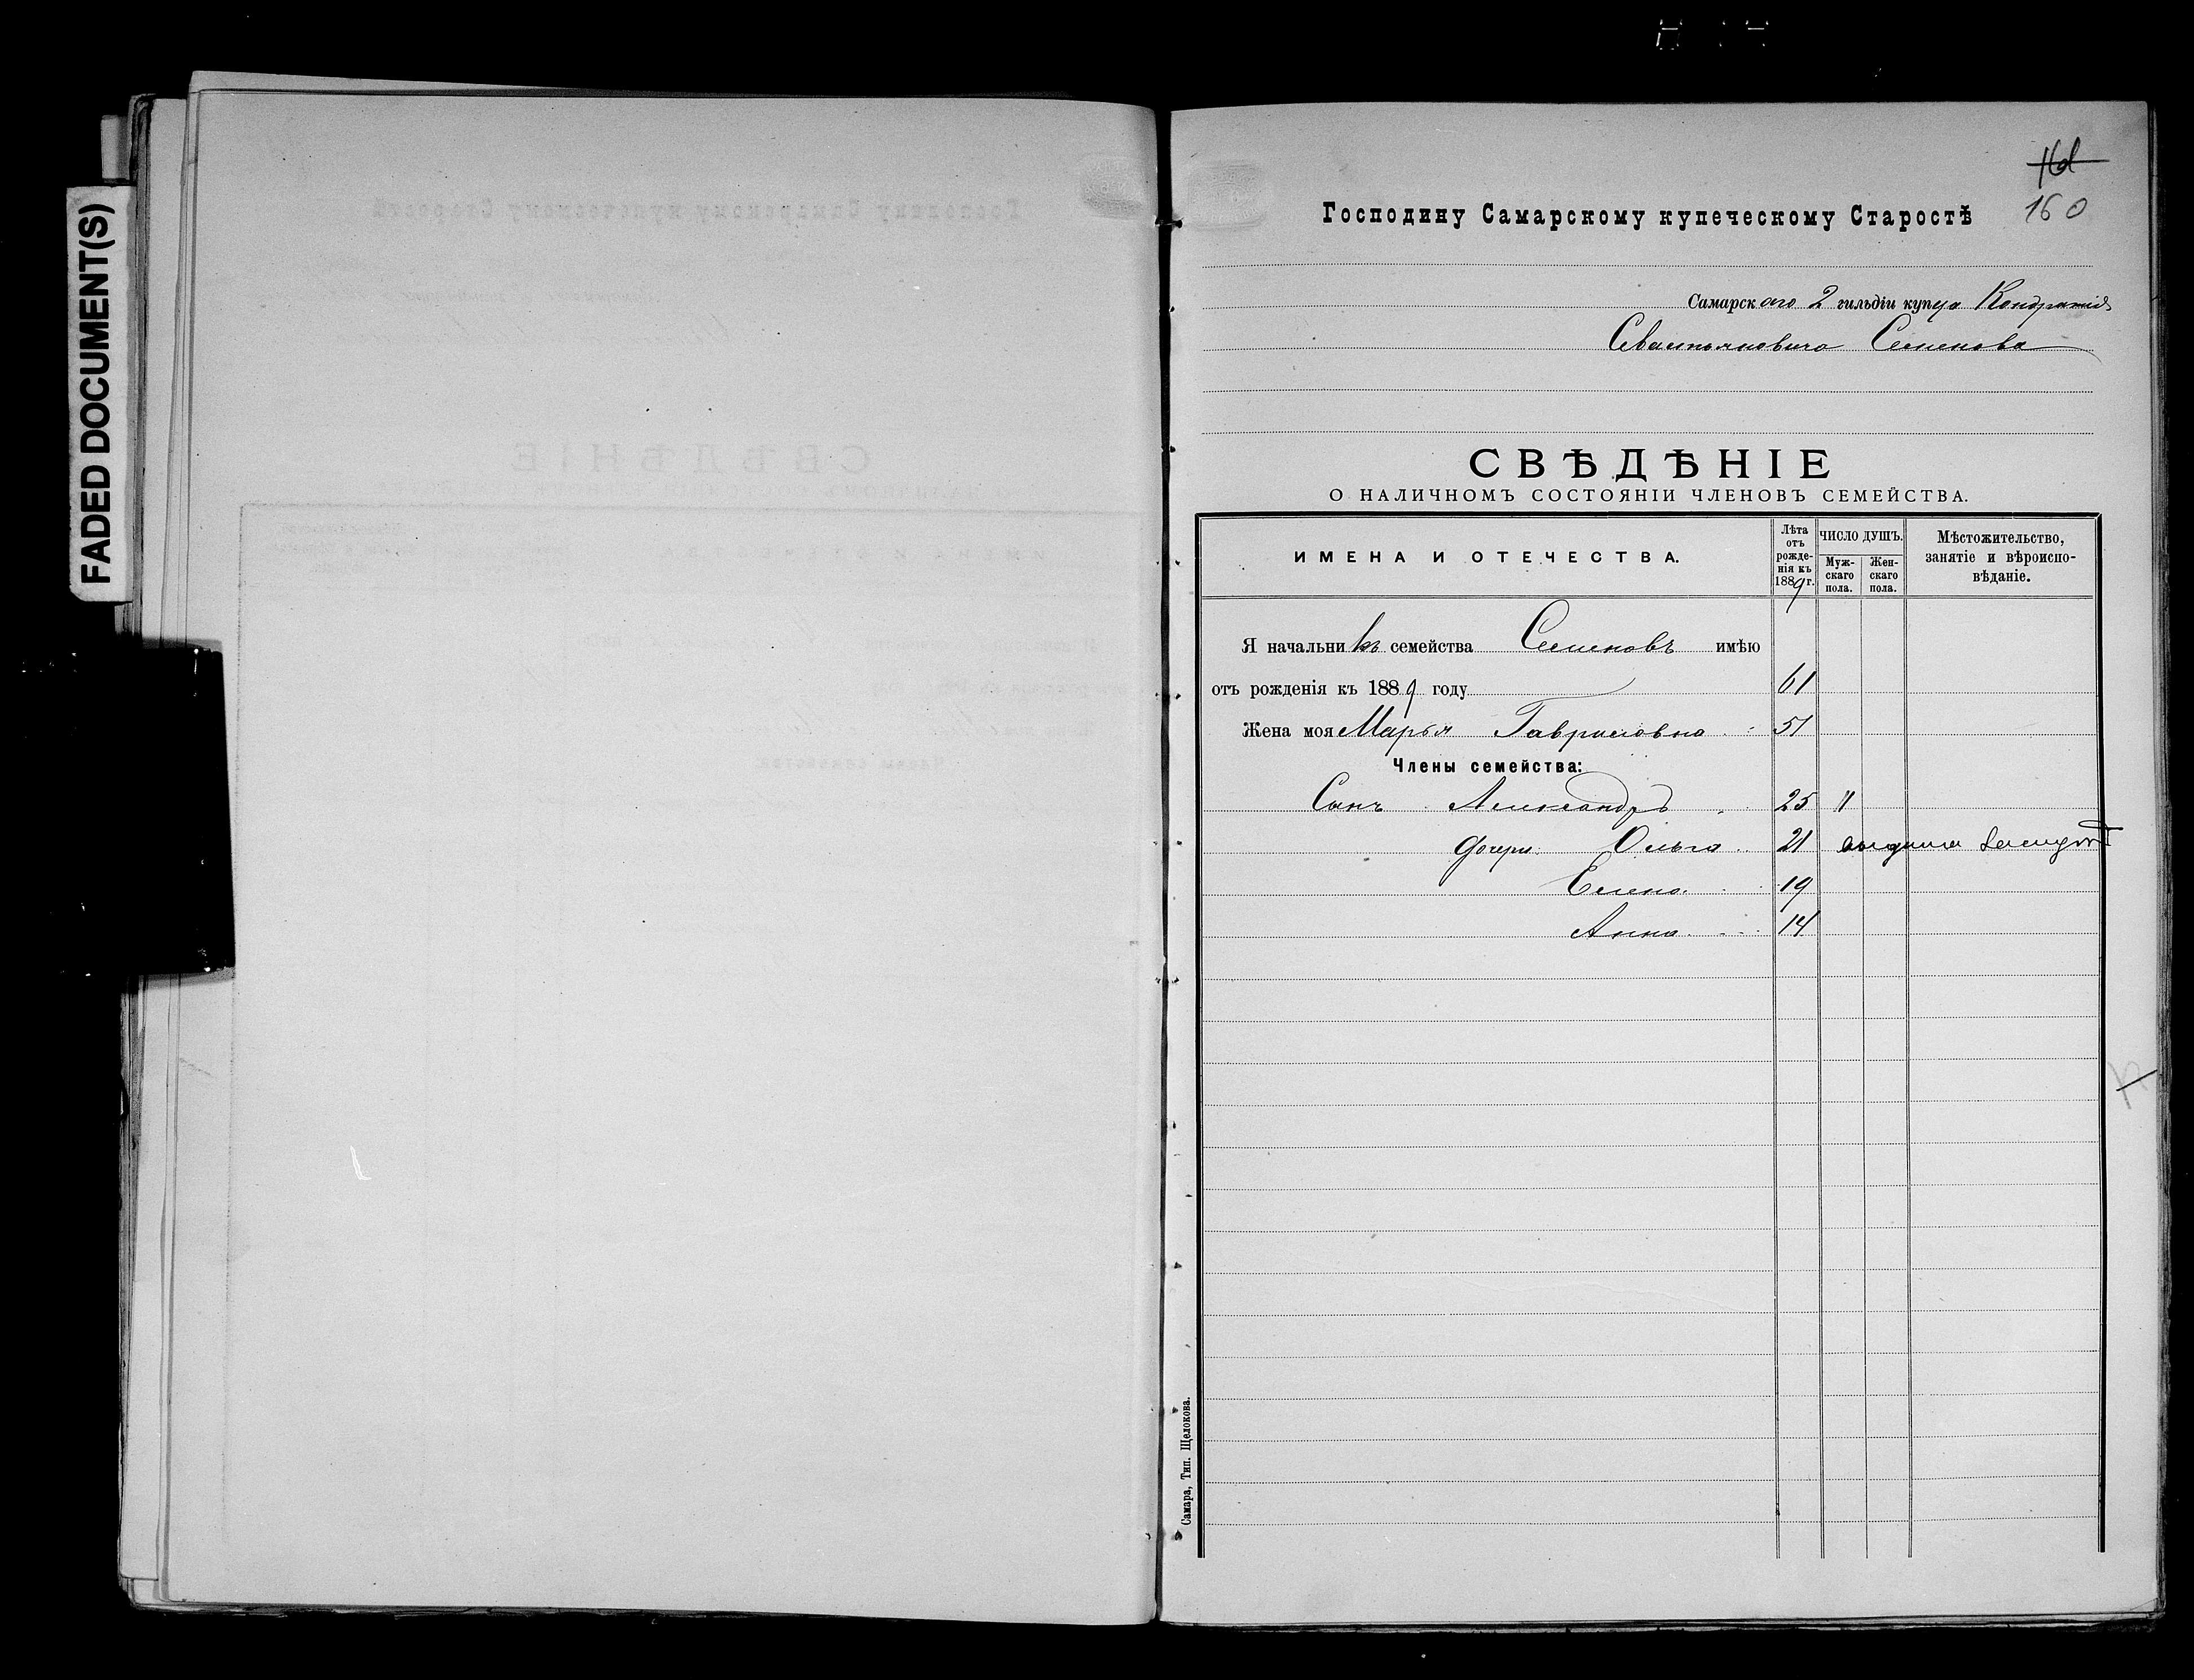 FADED DOCUMENT(S)
160
Господину Самарскому купеческому Старостѣ
Самарскаго 2 гильдіи купца Кондратія
Севастьяновича Семенова
СВѢДѢНІЕ
О НАЛИЧНОМЪ СОСТОЯНІИ ЧЛЕНОВЪ СЕМЕЙСТВА.
ИМЕНА И ОТЕЧЕСТВА.
Лѣта отъ рожденія къ 1889 г.
ЧИСЛО ДУШЪ.
Мужскаго пола.
Женскаго пола.
Мѣстожительство, занятіе и вѣроисповѣданіе.
Я начальникъ семейства Семеновъ имѣю
отъ рожденія къ 1889 году 61
Жена моя Марья Гавриловна 51
Члены семейства:
Сынъ Александръ 25 "
дочери Ольга 21 выдана замужъ
Елена 19
Анна 14
Самара, Тип. Щелокова.